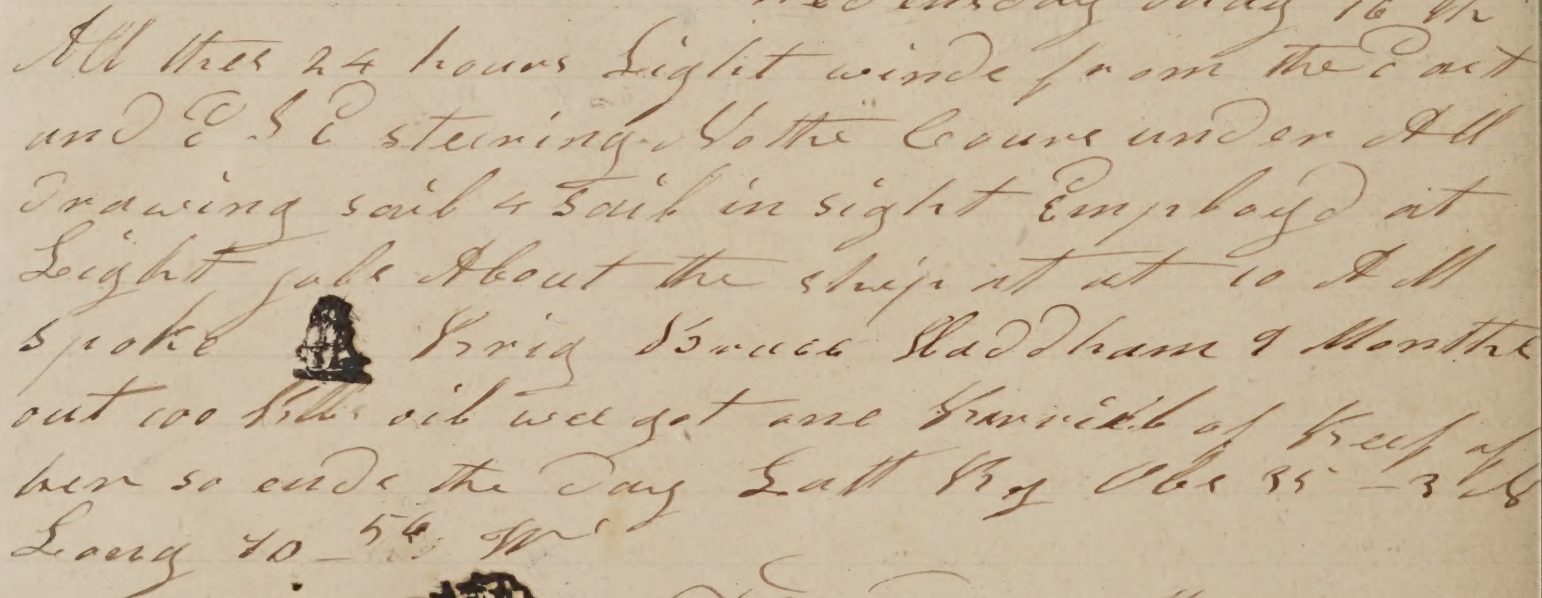 Wednesday May 16 th
All thes 24 hours Light winds from the East
and E S E steering Nothe Cours under All
Drawing sail 4 Sail in sight Employd at
Light jobs About the ship at at 10 A M
spoke Brig Haddham 9 Months
out 100 Blls oil wee got one Barrikl of Beef of
her so ends the Day Latt By Obs 35 - 3 N
Long 70 - 56 W